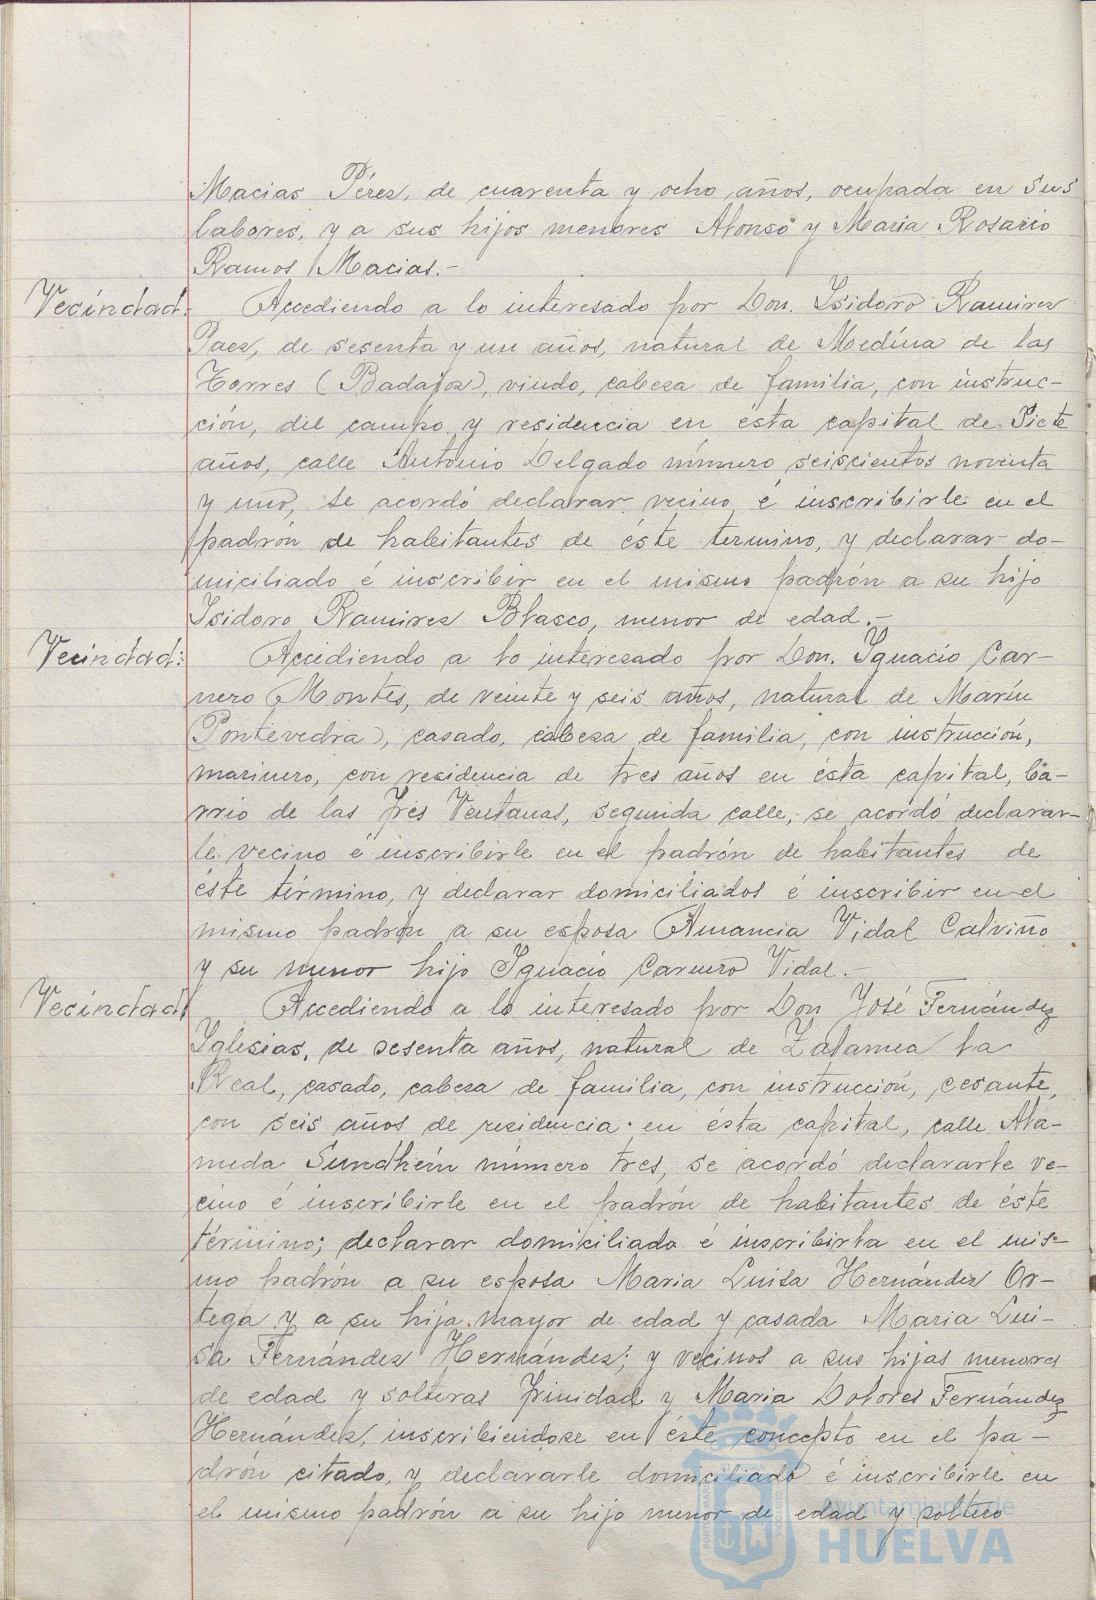 Macias Pérez, de cuarenta y ocho años, ocupada en sus
labores, y a sus hijos menores Alonso y Maria Rosario
Ramos Macias.-
Vecindad: Accediendo a lo interesado por Don. Isidoro Ramirez
Paez, de sesenta y un años, natural de Medína de las
Torres (Badajoz), viudo, cabeza de familia, con instruc-
ción, del campo y residencia en ésta capital de Siete
años, calle Antonio Delgado número seiscientos noventa
y uno, se acordó declarar vecino é inscribirle en el
padrón de habitantes de éste termino, y declarar do-
miciliado é inscribir en el mismo padrón a su hijo
Isidoro Ramirez Blasco, menor de edad.-
Vecindad: Accediendo a lo interesado por Don. Ignacio Car-
nero Montes, de veinte y seis años, natural de Marín
(Pontevedra), casado, cabeza de familia, con instrucción,
marinero, con residencia de tres años en ésta capital, Ba-
rrio de las Tres Ventanas, segunda calle, se acordó declarar-
le vecino é inscribirle en el padrón de habitantes de
éste término, y declarar domiciliados é inscribir en el
mismo padrón a su esposa Amancia Vidal Calviño
y su menor hijo Ignacio Carnero Vidal.-
Vecíndad Accediendo a lo interesado por Don José Fernández
Iglesias, de sesenta años, natural de Zalamea la
Real, casado, cabeza de familia, con instrucción, cesante,
con seis años de residencia en ésta capital, calle Ala-
meda Sundheín número tres, se acordó declararle ve-
cino é inscribirle en el padrón de habitantes de éste
término; declarar domiciliada é inscribirla en el mis-
mo padrón a su esposa Maria Luisa Hernández Or-
tega y a su hija mayor de edad y casada Maria Lui-
sa Fernández Hernández; y vecinos a sus hijas menores
de edad y solteras Trinidad y Maria Dolores Fernández
Hernández, inscribiendose en éste concepto en el pa-
drón citado, y declararle domiciliado é inscribirle en
el mismo padrón a su hijo menor de edad y soltero
Ayuntamiento de
HUELVA